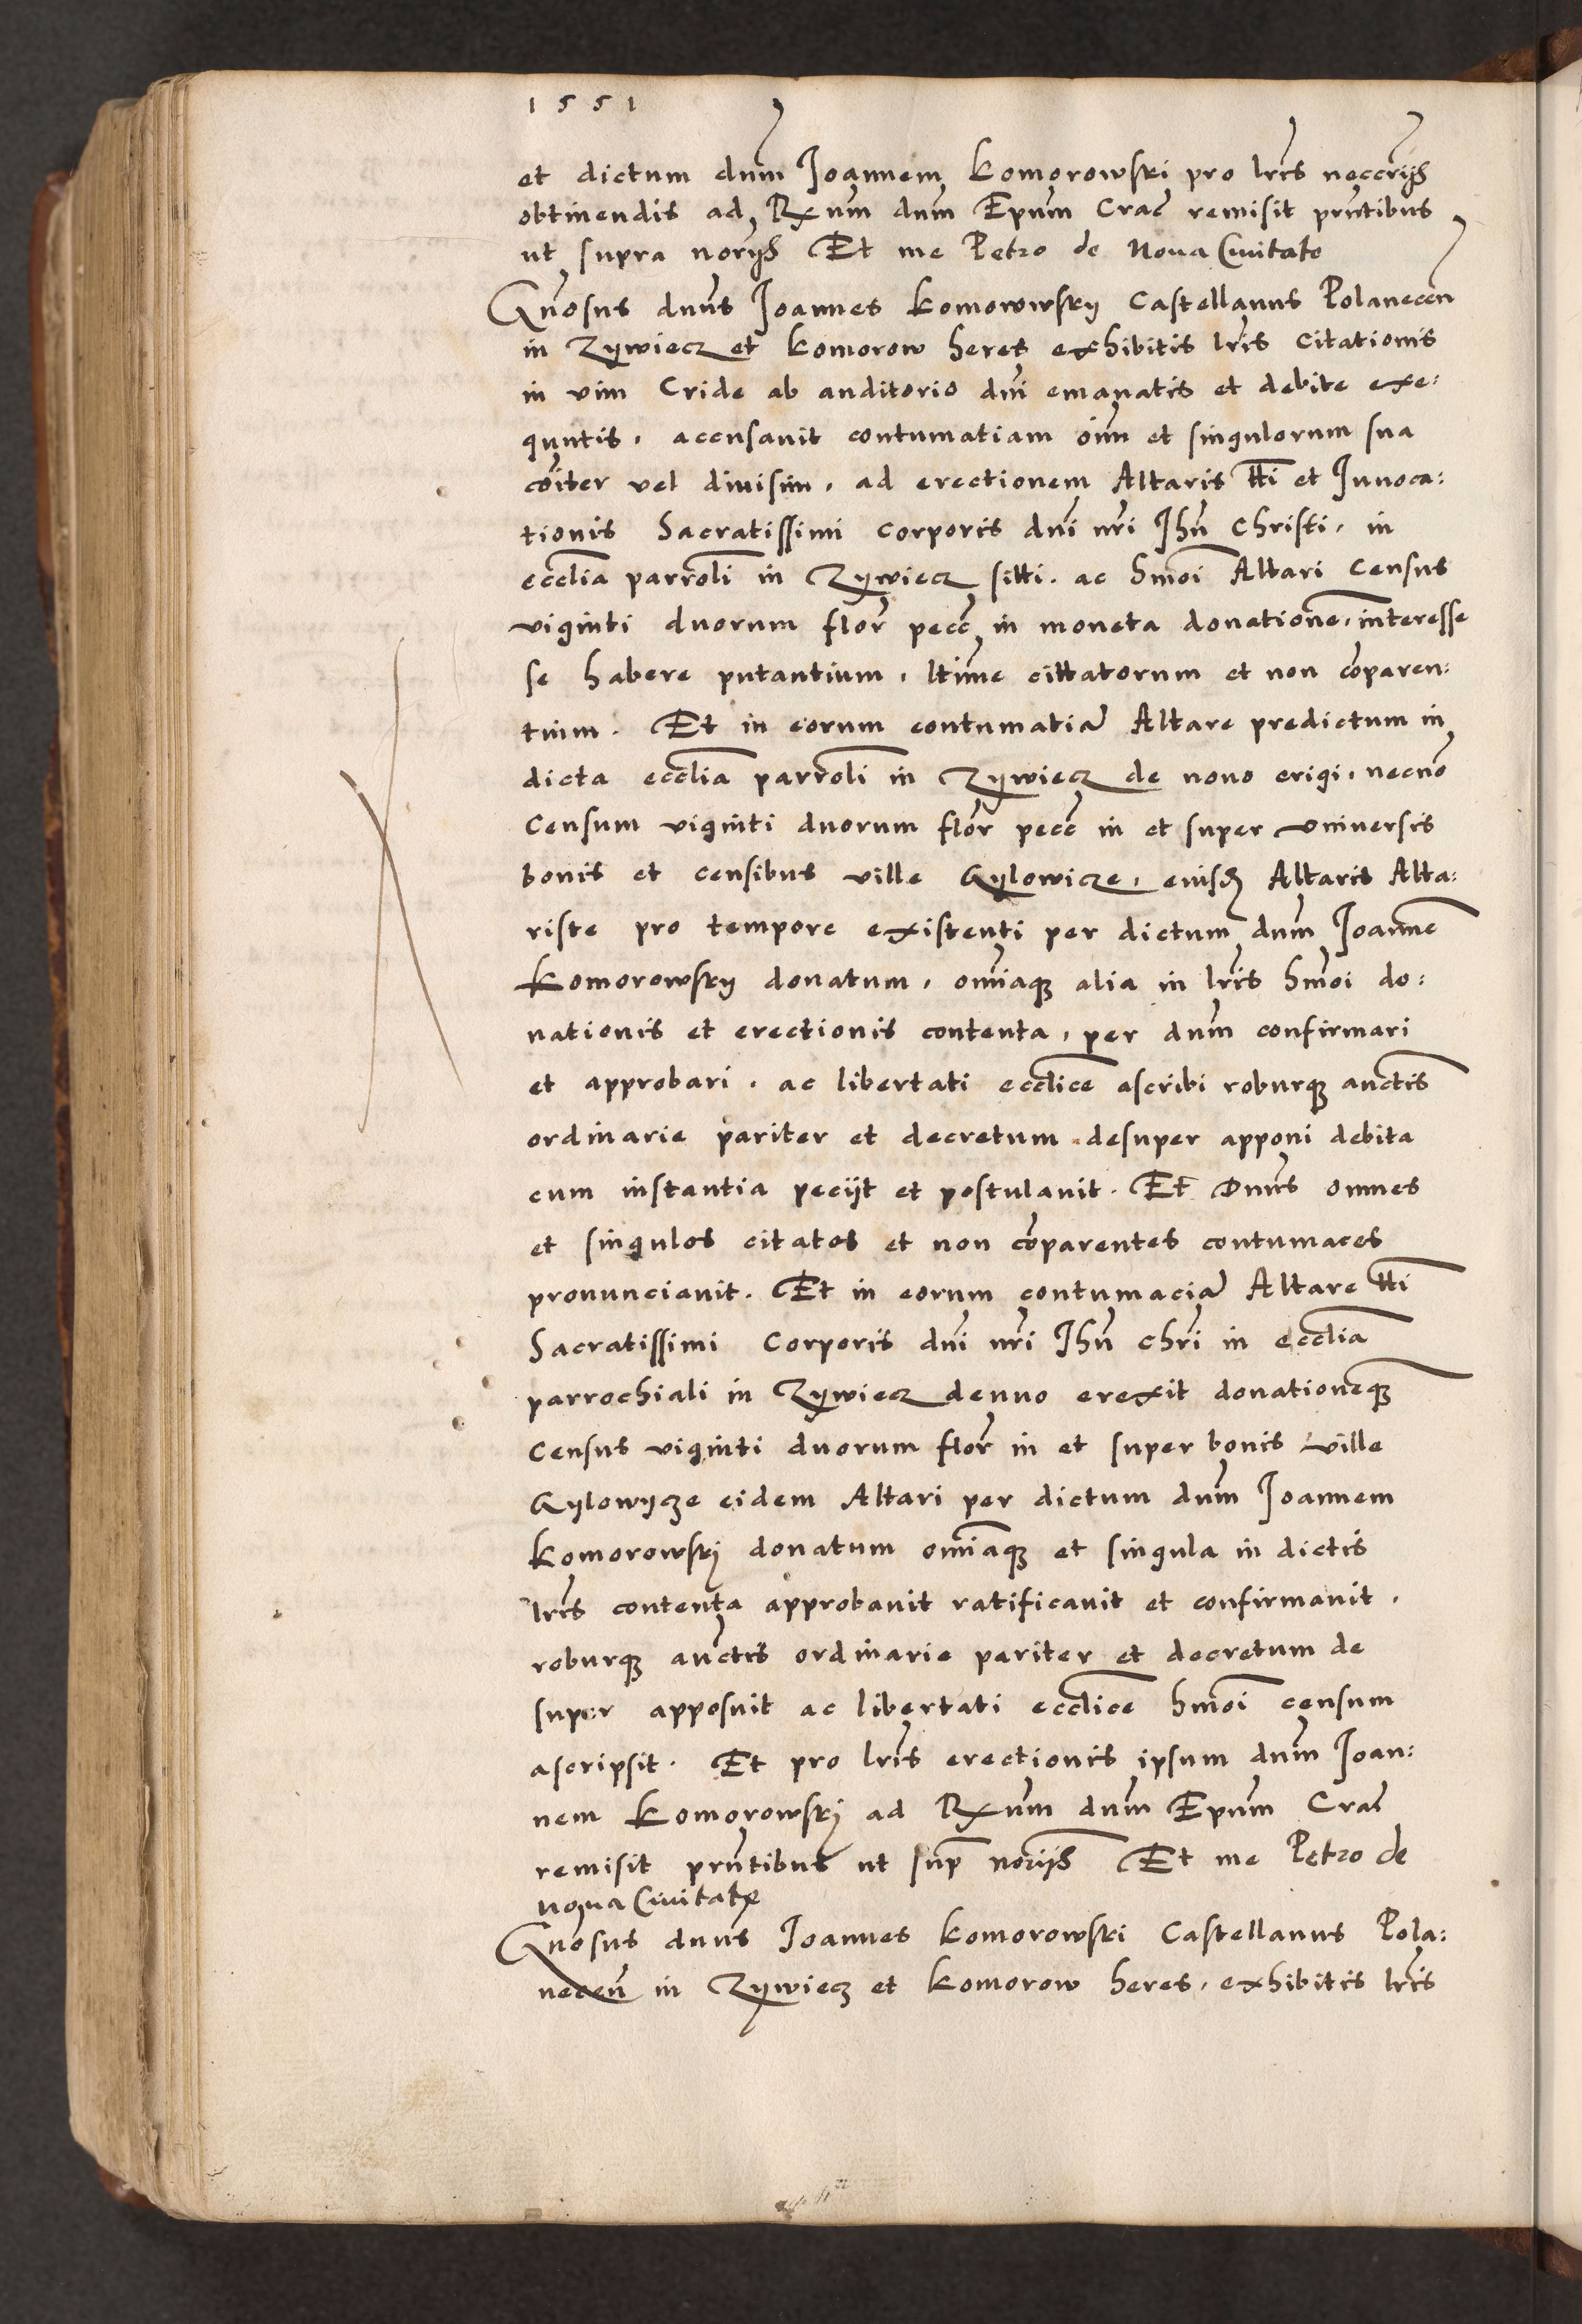 1551
et dictum dnm̄ Joannem Komorowski pro lrīs neccrījs
obtinendis ad Rx̄um dnm̄ Epūm Crac̄ remisit prn̄tibus
ut supra norījs Et me Petro de Noua Ciuitate
Gn̄osus dnūs Joannes Komorowskij Castellanus Polanecen̄
in Zywiecz et Komorow heres exhibitis lrīs Citationis
in vim Cride ab auditorio dnī emanatis et debite exe:
quutis, accusauit contumatiam oīm et singulorum sua
coīter vel diuisim, ad erectionem Altaris ttī et Inuoca:
tionis Sacratissimi corporis dnī nrī Jhū Christi, in
eccl̄ia parrolī in Zywiecz sitti. ac hmōi Altari Census
viginti duorum flor̄ pecc̄ in moneta donatione, interesse
se habere putantium, lt̄ime cittatorum et non cōparen:
tium. Et in eorum contumatiā Altare predictum in
dicta eccl̄ia parrolī in Zywiecz de nouo erigi, necnō
Censum viginti duorum flor̄ pecc̄ in et super vniuersis
bonis et censibus ville Gylowicze, eiusd̄ Altaris Alta:
riste pro tempore existenti per dictum dnm̄ Joannē
Komorowskij donatum, omīaqꝫ alia in lrīs hmōi do:
nationis et erectionis contenta, per dnm̄ confirmari
et approbari, ac libertati eccl̄ice ascribi roburqꝫ auctīs
ordinarie pariter et decretum desuper apponi debita
cum instantia pecijt et postulauit. Et Dnūs omnes
et singulos citatos et non cōparentes contumaces
pronunciauit. Et in eorum contumaciā Altare ttī
Sacratissimi Corporis dnī nrī Jhū chrī in eccl̄ia
parrochiali in Zywiecz denuo erexit donationēqꝫ
Census viginti duorum flor̄ in et super bonis ville
Gylowycze eidem Altari per dictum dnm̄ Joannem
Komorowskj donatum omīaqꝫ et singula in dictis
lrīs contenta approbauit ratificauit et confirmauit,
roburqꝫ auctīs ordinarie pariter et decretum de
super apposuit ac libertati eccl̄ice hmōi censum
ascripsit. Et pro lrīs erectionis ipsum dnm̄ Joan:
nem Komorowskj ad Rx̄um dnm̄ Epūm Crac̄
remisit prn̄tibus ut sup̄ norījs Et me Petro de
noua Ciuitate
Gn̄osus dnūs Joannes Komorowski Castellanus Pola:
necen̄ in Zywiecz et Komorow heres, exhibitis lrīs